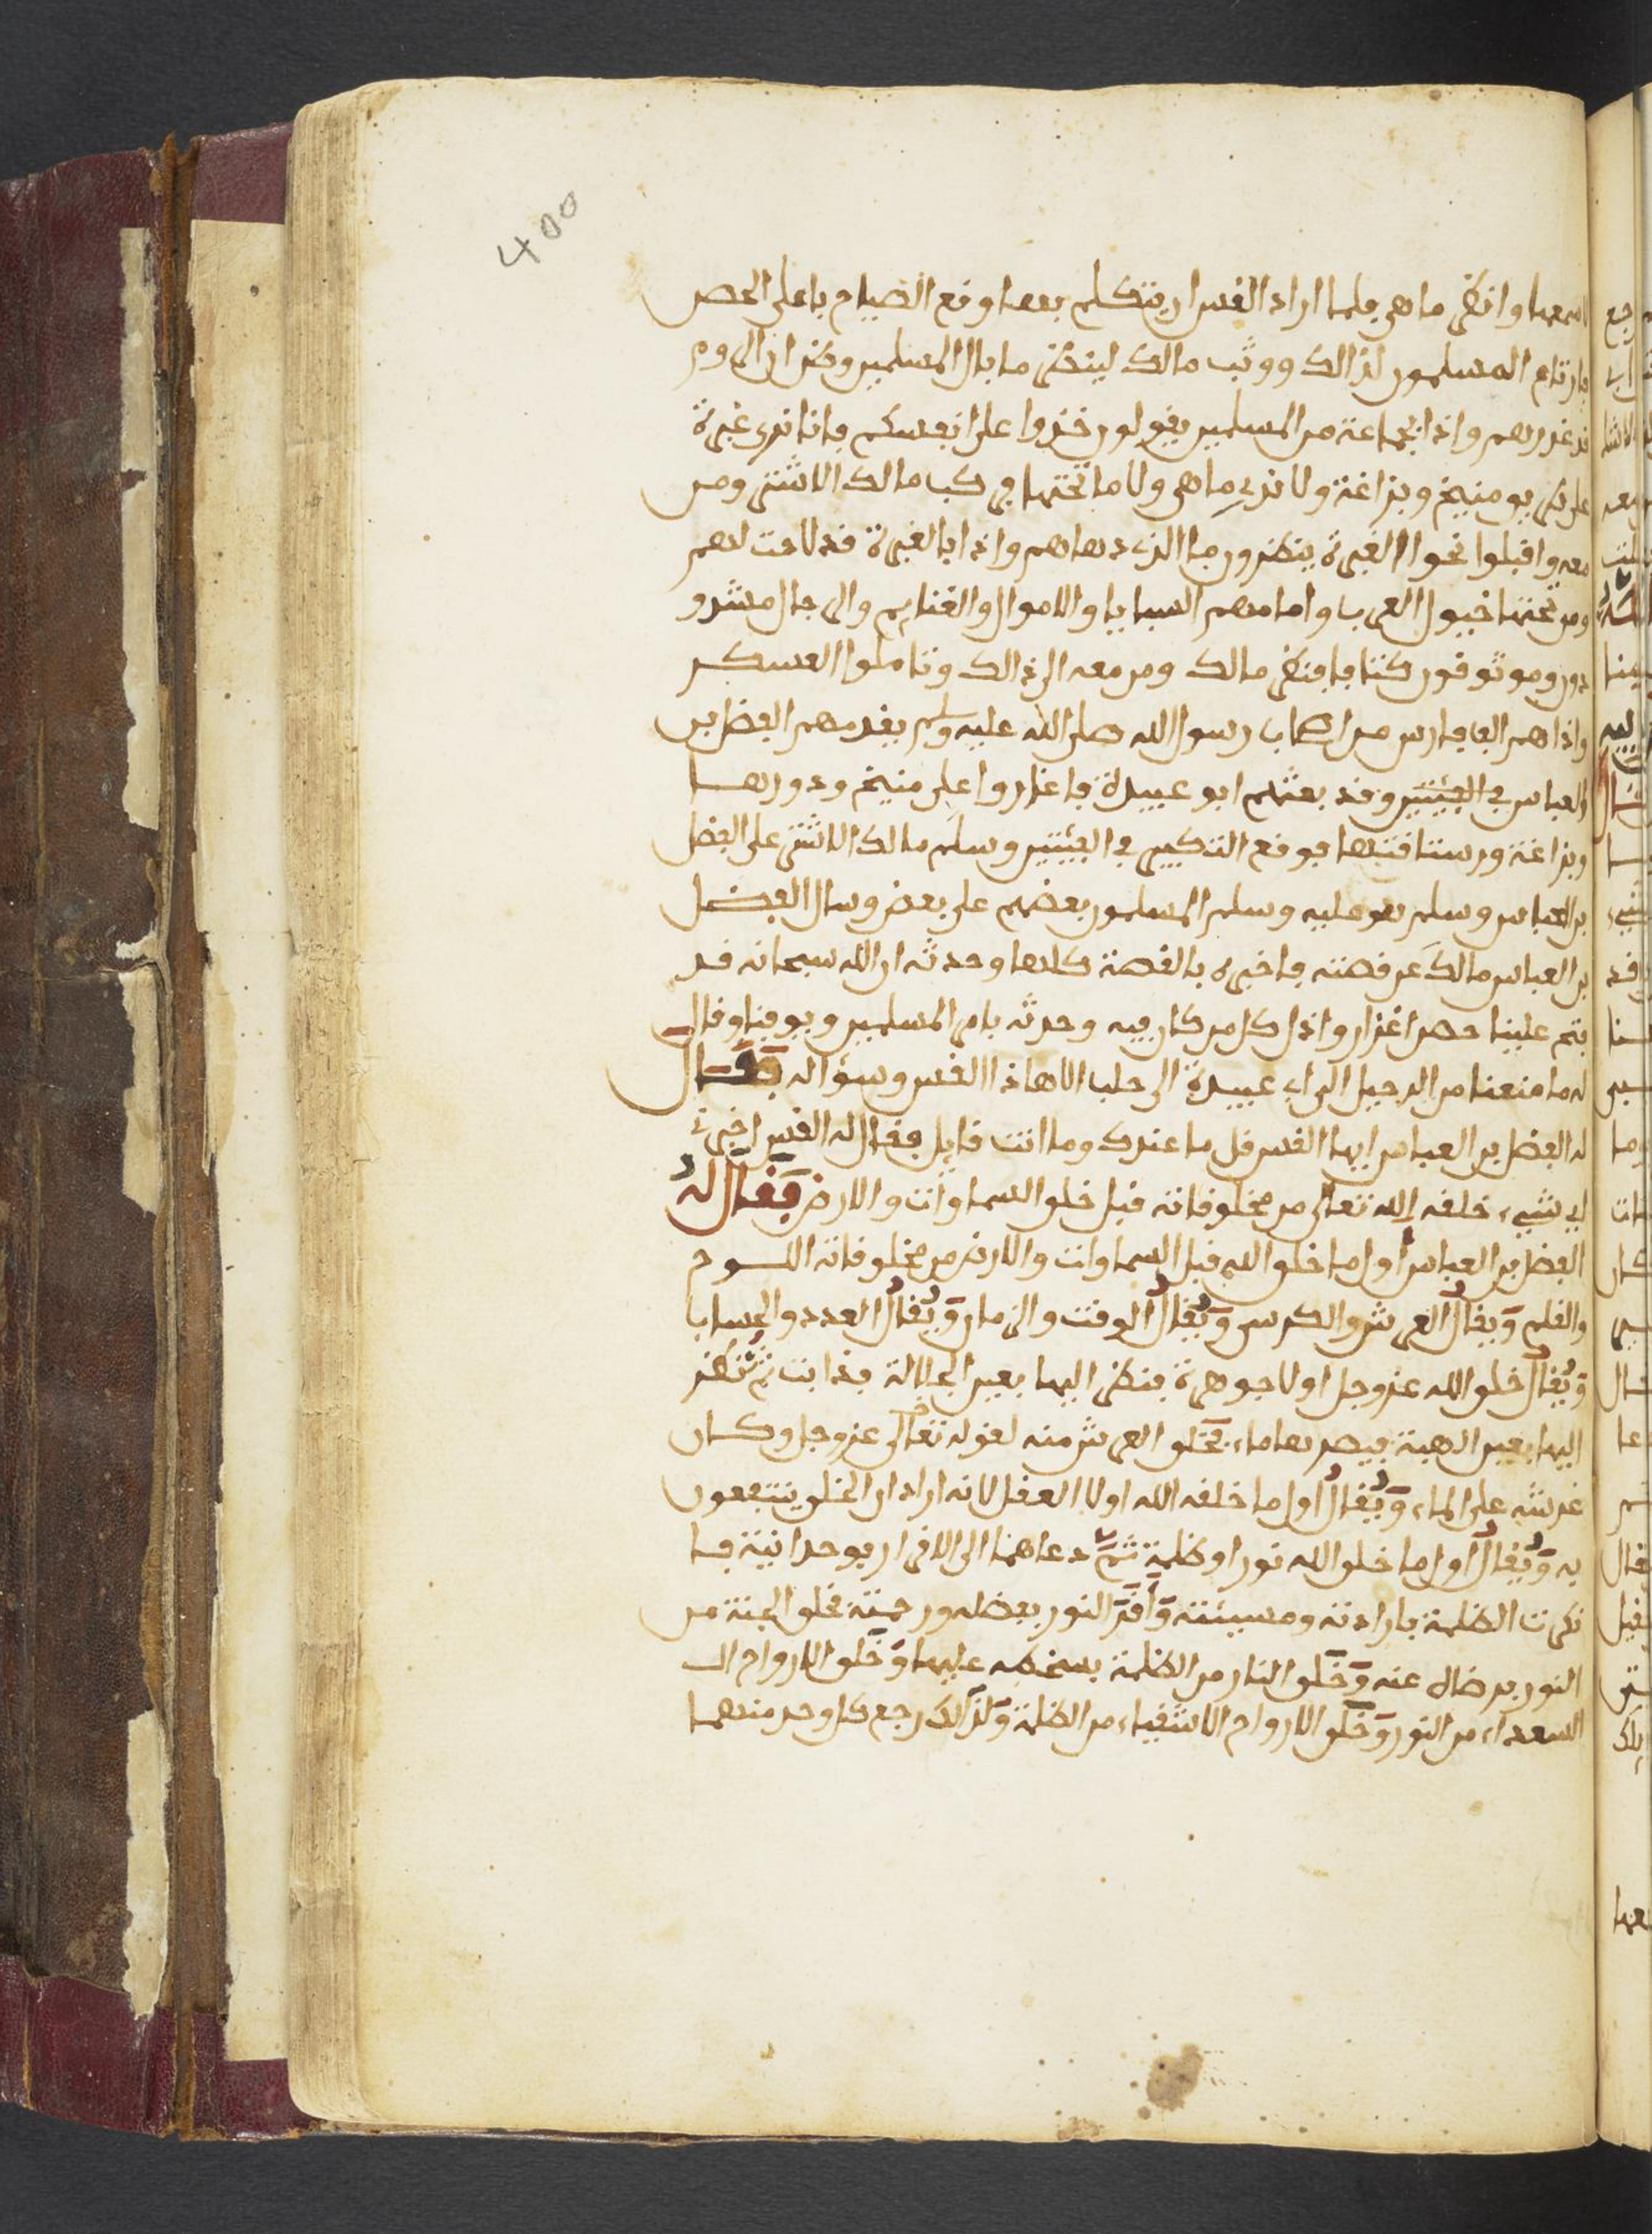 400
اسمعها وانظر ما هي فلما اراد القس ان يتكلم بعدها وقع الصياح باعلى الحصن
فارتاع المسلمون لذالك ووثب مالك لينظر ما بال المسلمين وظن ان الروم
قد غدرت بهم واذا بجماعة من المسلمين يقولون خذوا على انفسكم فاننا نرى غبرة
على طريق منبج وبزاعة ولا ندري ما هي ولا ما تحتها فركب مالك الاشتر ومن
معه واقبلوا نحو الغبرة ينظرون ما الذي دهاهم واذا بالغبرة قد لاحت لهم
ومن تحتها خيول العرب وامامهم السبايا والاموال والغنايم والرجال مشدو
دون وموثوقون كتافا فنظر مالك ومن معه الى ذالك وتاملوا العسكر
واذا هم الف فارس من اصحاب رسول الله صلى الله عليه وسلم يقدمهم الفضل بن
العباس في الفئتين وقد بعثهم ابو عبيدة فاغاروا على منبج ودورها
وبزاغة ورستاقتها فوقع التكبير في الفئتين وسلم مالك الاشتر على الفضل
بن العباس وسلم هو عليه وسلم المسلمون بعضهم على بعض وسال الفضل
بن العباس مالك عن قصته فاخبره بالقصة كلها وحدثه ان الله سبحانه قد
فتح علينا حصن اعزاز واذل كل من كان فيه وحدثه بامر المسلمين ويوقنا وقال
له ما منعنا من الرحيل الى ابي عبيدة الى حلب الا هاذا القس وسؤاله فقال
له الفضل بن العباس ايها القس قل ما عندك وما انت قايل فقال له القس اخبرني
اي شيء خلقه الله تعالى من مخلوقاته قبل خلق السماوات والارض فقال له
الفضل بن العباس اول ما خلق الله قبل السماوات والارض من مخلوقاته اللوح
والقلم ويقال العرش والكرسي ويقال الوقت والزمان ويقال العدد والحسابا
ويقال خلق الله عز وجل اولا جوهرة فنظر اليها بعين الجلالة فذابت ثم نظر
اليها بعين الهيبة فيصرها ماء فخلق العرش منه لقوله تعالى عز وجل وكان
عرشه على الماء ويقال اول ما خلقه الله اولا العقل لانه اراد ان الخلق ينتفعون
به ويقال اول ما خلق الله نورا وظلمة ثم دعاهما الى الاقرار بوحدانيته فا
نكرت الظلمة بارادته ومسيئته واقر النور بفضله ورحمته فخلق الجنة من
النور برضاه عنه وخلق النار من الظلمة بسخطه عليها وخلق الارواح ال
السعداء من النور وخلق الارواح الاشقياء من الظلمة ولذالك رجع كل وحد منهما